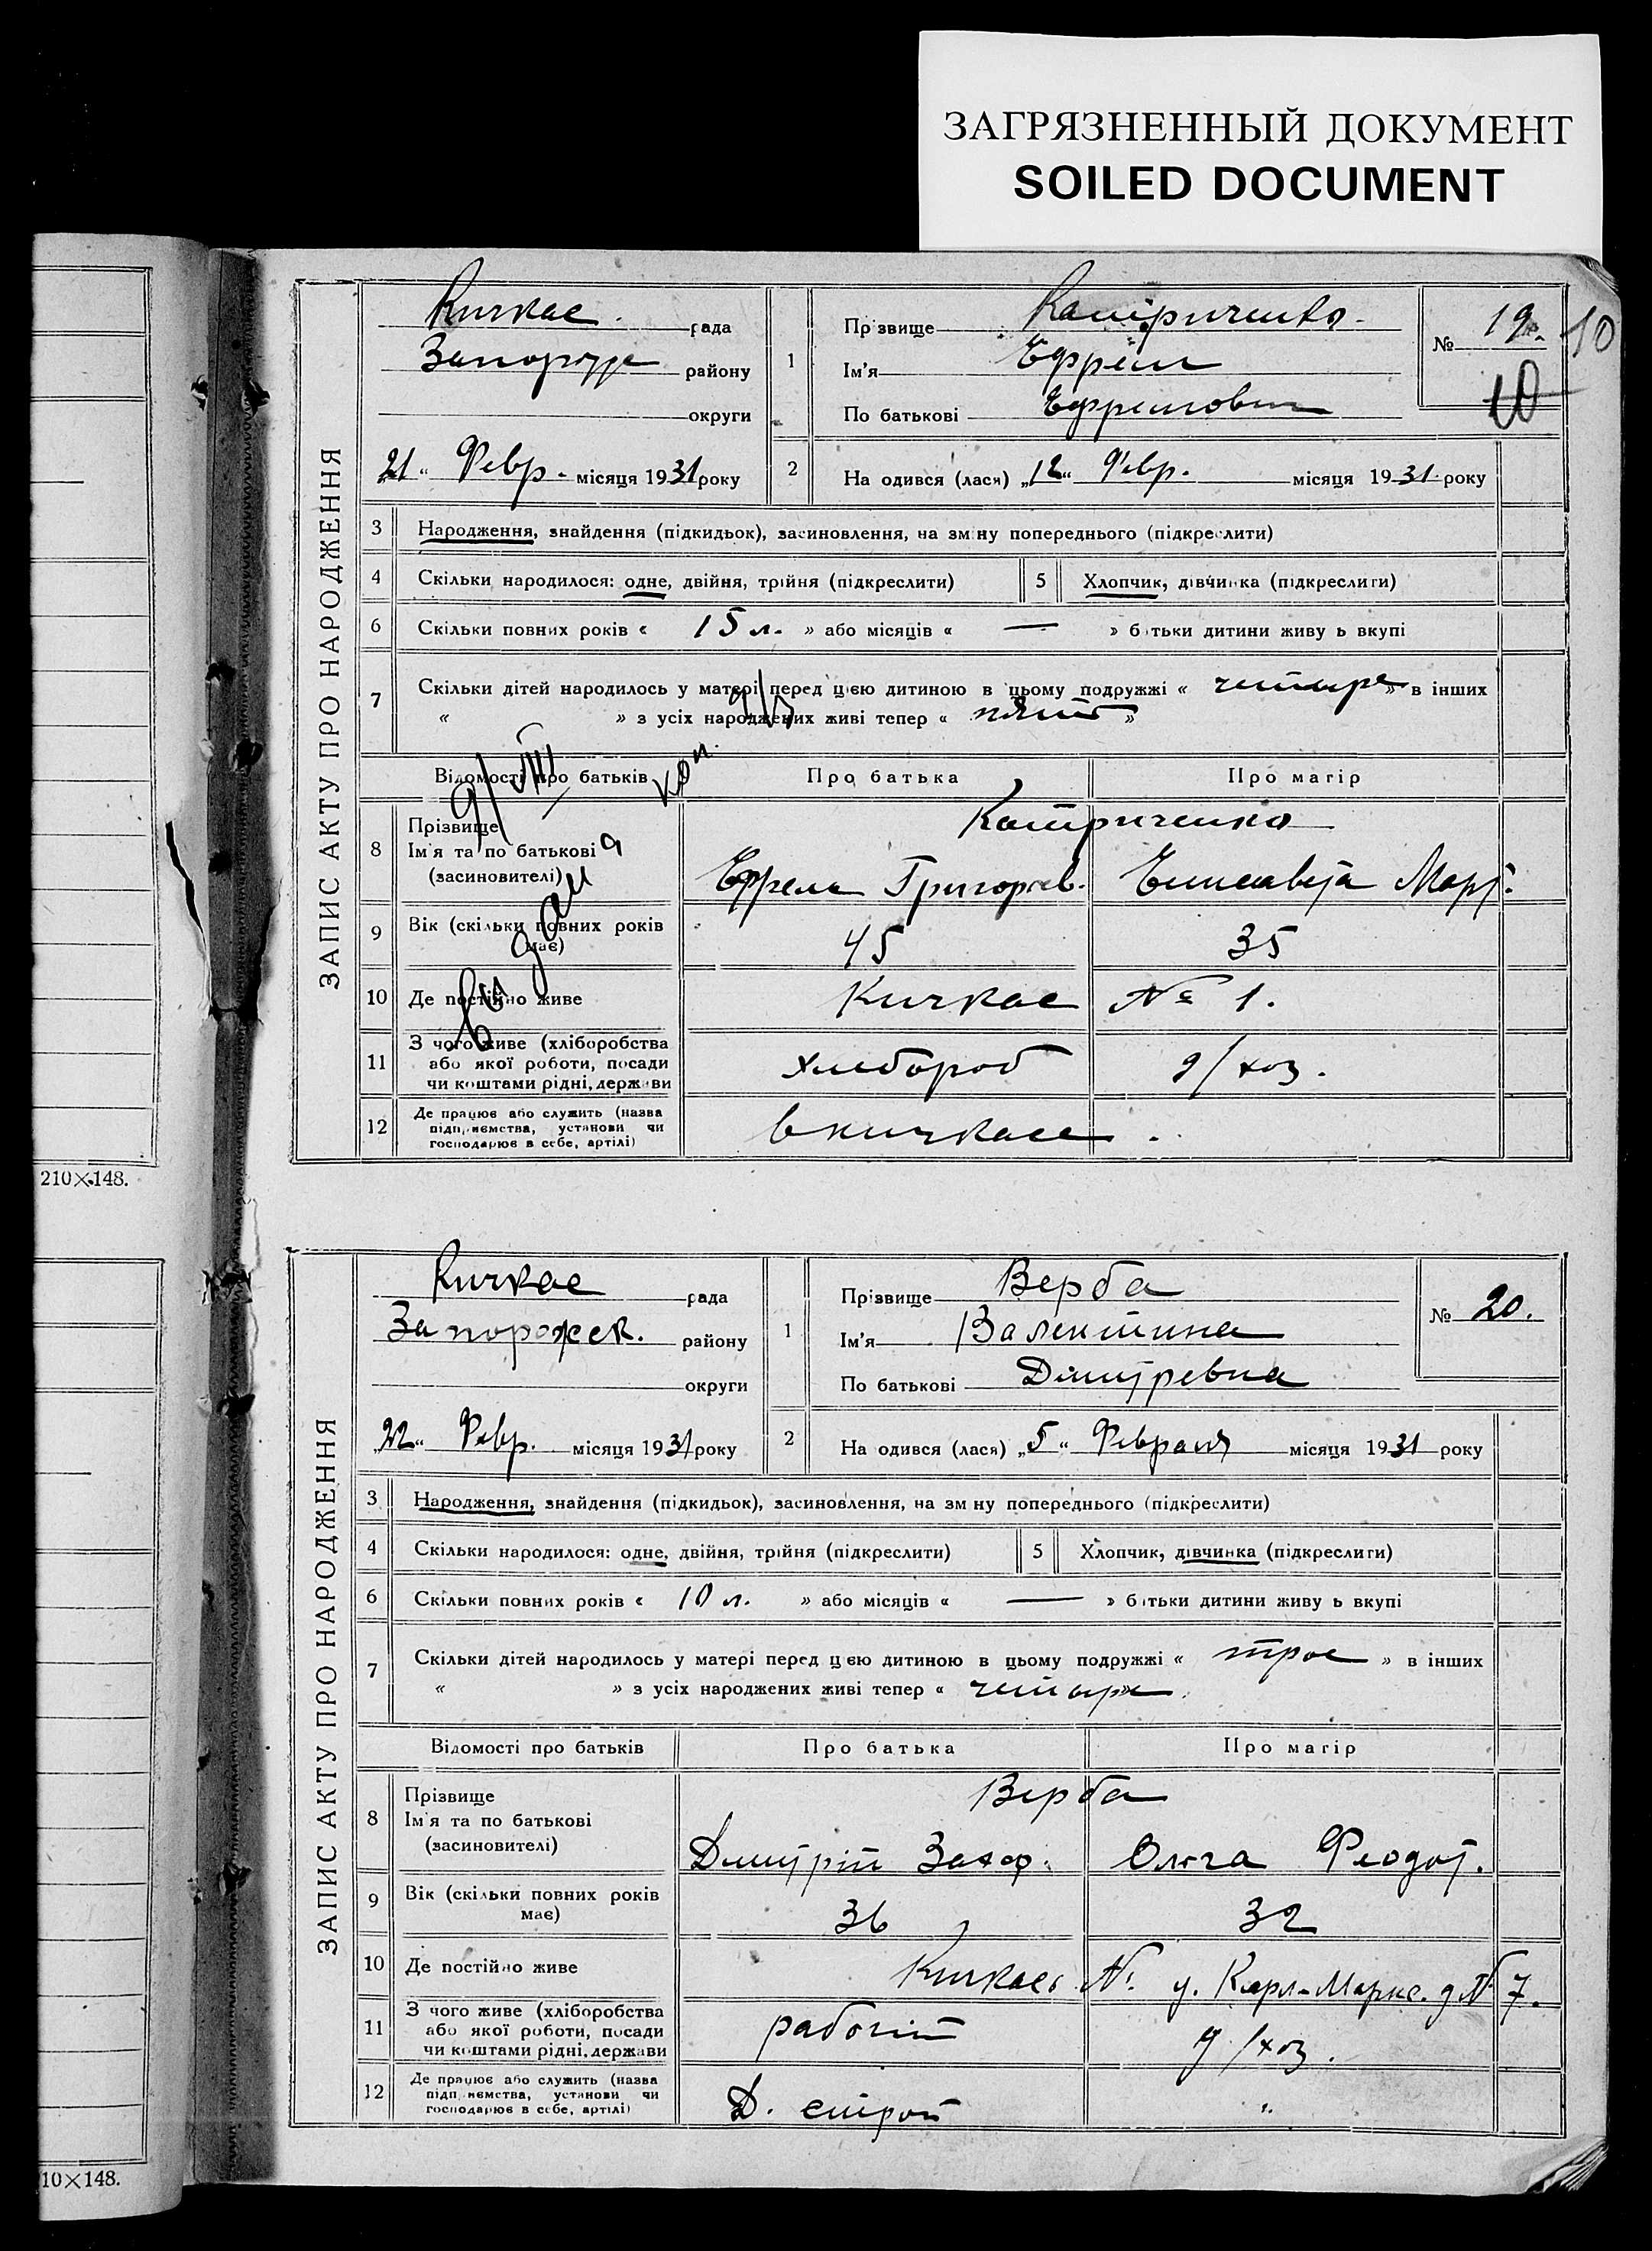 ЗАГРЯЗНЕННЫЙ ДОКУМЕНТ
SOILED DOCUMENT
210×148.
10×148.
ЗАПИС АКТУ ПРО НАРОДЖЕННЯ
Кичкас рада
району
округи
„21“ Февр. місяця 1931 року
1
Прізвище Катриченко
Ім’я Ефрем
По батькові Ефремович
№ 19. 10
10
2 На одився (лася) „12“ Февр. місяця 1931 року
3 Народження, знайдення (підкидьок), засиновлення, на зм ну попереднього (підкреслити)
4 Скільки народилося: одне, двійня, трійня (підкреслити) 5 Хлопчик, дівчинка (підкреслити)
6 Скільки повних років « 15 л. » або місяців « — » батьки дитини живу ь вкупі
7 Скільки дітей народилось у матері перед цією дитиною в цьому подружжі « четыре » в інших
« » з усіх народжених живі тепер « пять »
Відомості про батьків Про батька Про матір
8 Прізвище Катриченко
Ім’я та по батькові
(засиновителі) Ефрем Григорьев. Елисавета
9 Вік (скільки повних років має) 45 35
10 Де постійно живе Кичкас № 1.
11 З чого живе (хліборобства
або якої роботи, посади
чи коштами рідні, держави хлебороб д/хоз.
12 Де працює або служить (назва
підприємства, установи чи
господарює в себе, артілі) в кичкасе.
9/VIII
ЗАПИС АКТУ ПРО НАРОДЖЕННЯ
Кичкас рада
Запорожск. району
округи
„22“ Февр. місяця 1931 року
1
Прізвище Верба
Ім’я Валентина
По батькові Дмитревна
№ 20.
2 На одився (лася) „5“ Февраля місяця 1931 року
3 Народження, знайдення (підкидьок), засиновлення, на зм ну попереднього (підкреслити)
4 Скільки народилося: одне, двійня, трійня (підкреслити) 5 Хлопчик, дівчинка (підкреслити)
6 Скільки повних років « 10 л. » або місяців « — » батьки дитини живу ь вкупі
7 Скільки дітей народилось у матері перед цією дитиною в цьому подружжі « трое » в інших
« » з усіх народжених живі тепер « четыре
Відомості про батьків Про батька Про матір
8 Прізвище Верба
Ім’я та по батькові
(засиновителі) Дмитрій Захар. Ольга Феодот.
9 Вік (скільки повних років має) 36 32
10 Де постійно живе Кичкас № у. Карл-Маркс. д № 7.
11 З чого живе (хліборобства
або якої роботи, посади
чи коштами рідні, держави рабочій д/хоз.
12 Де працює або служить (назва
підприємства, установи чи
господарює в себе, артілі) Д. строй "